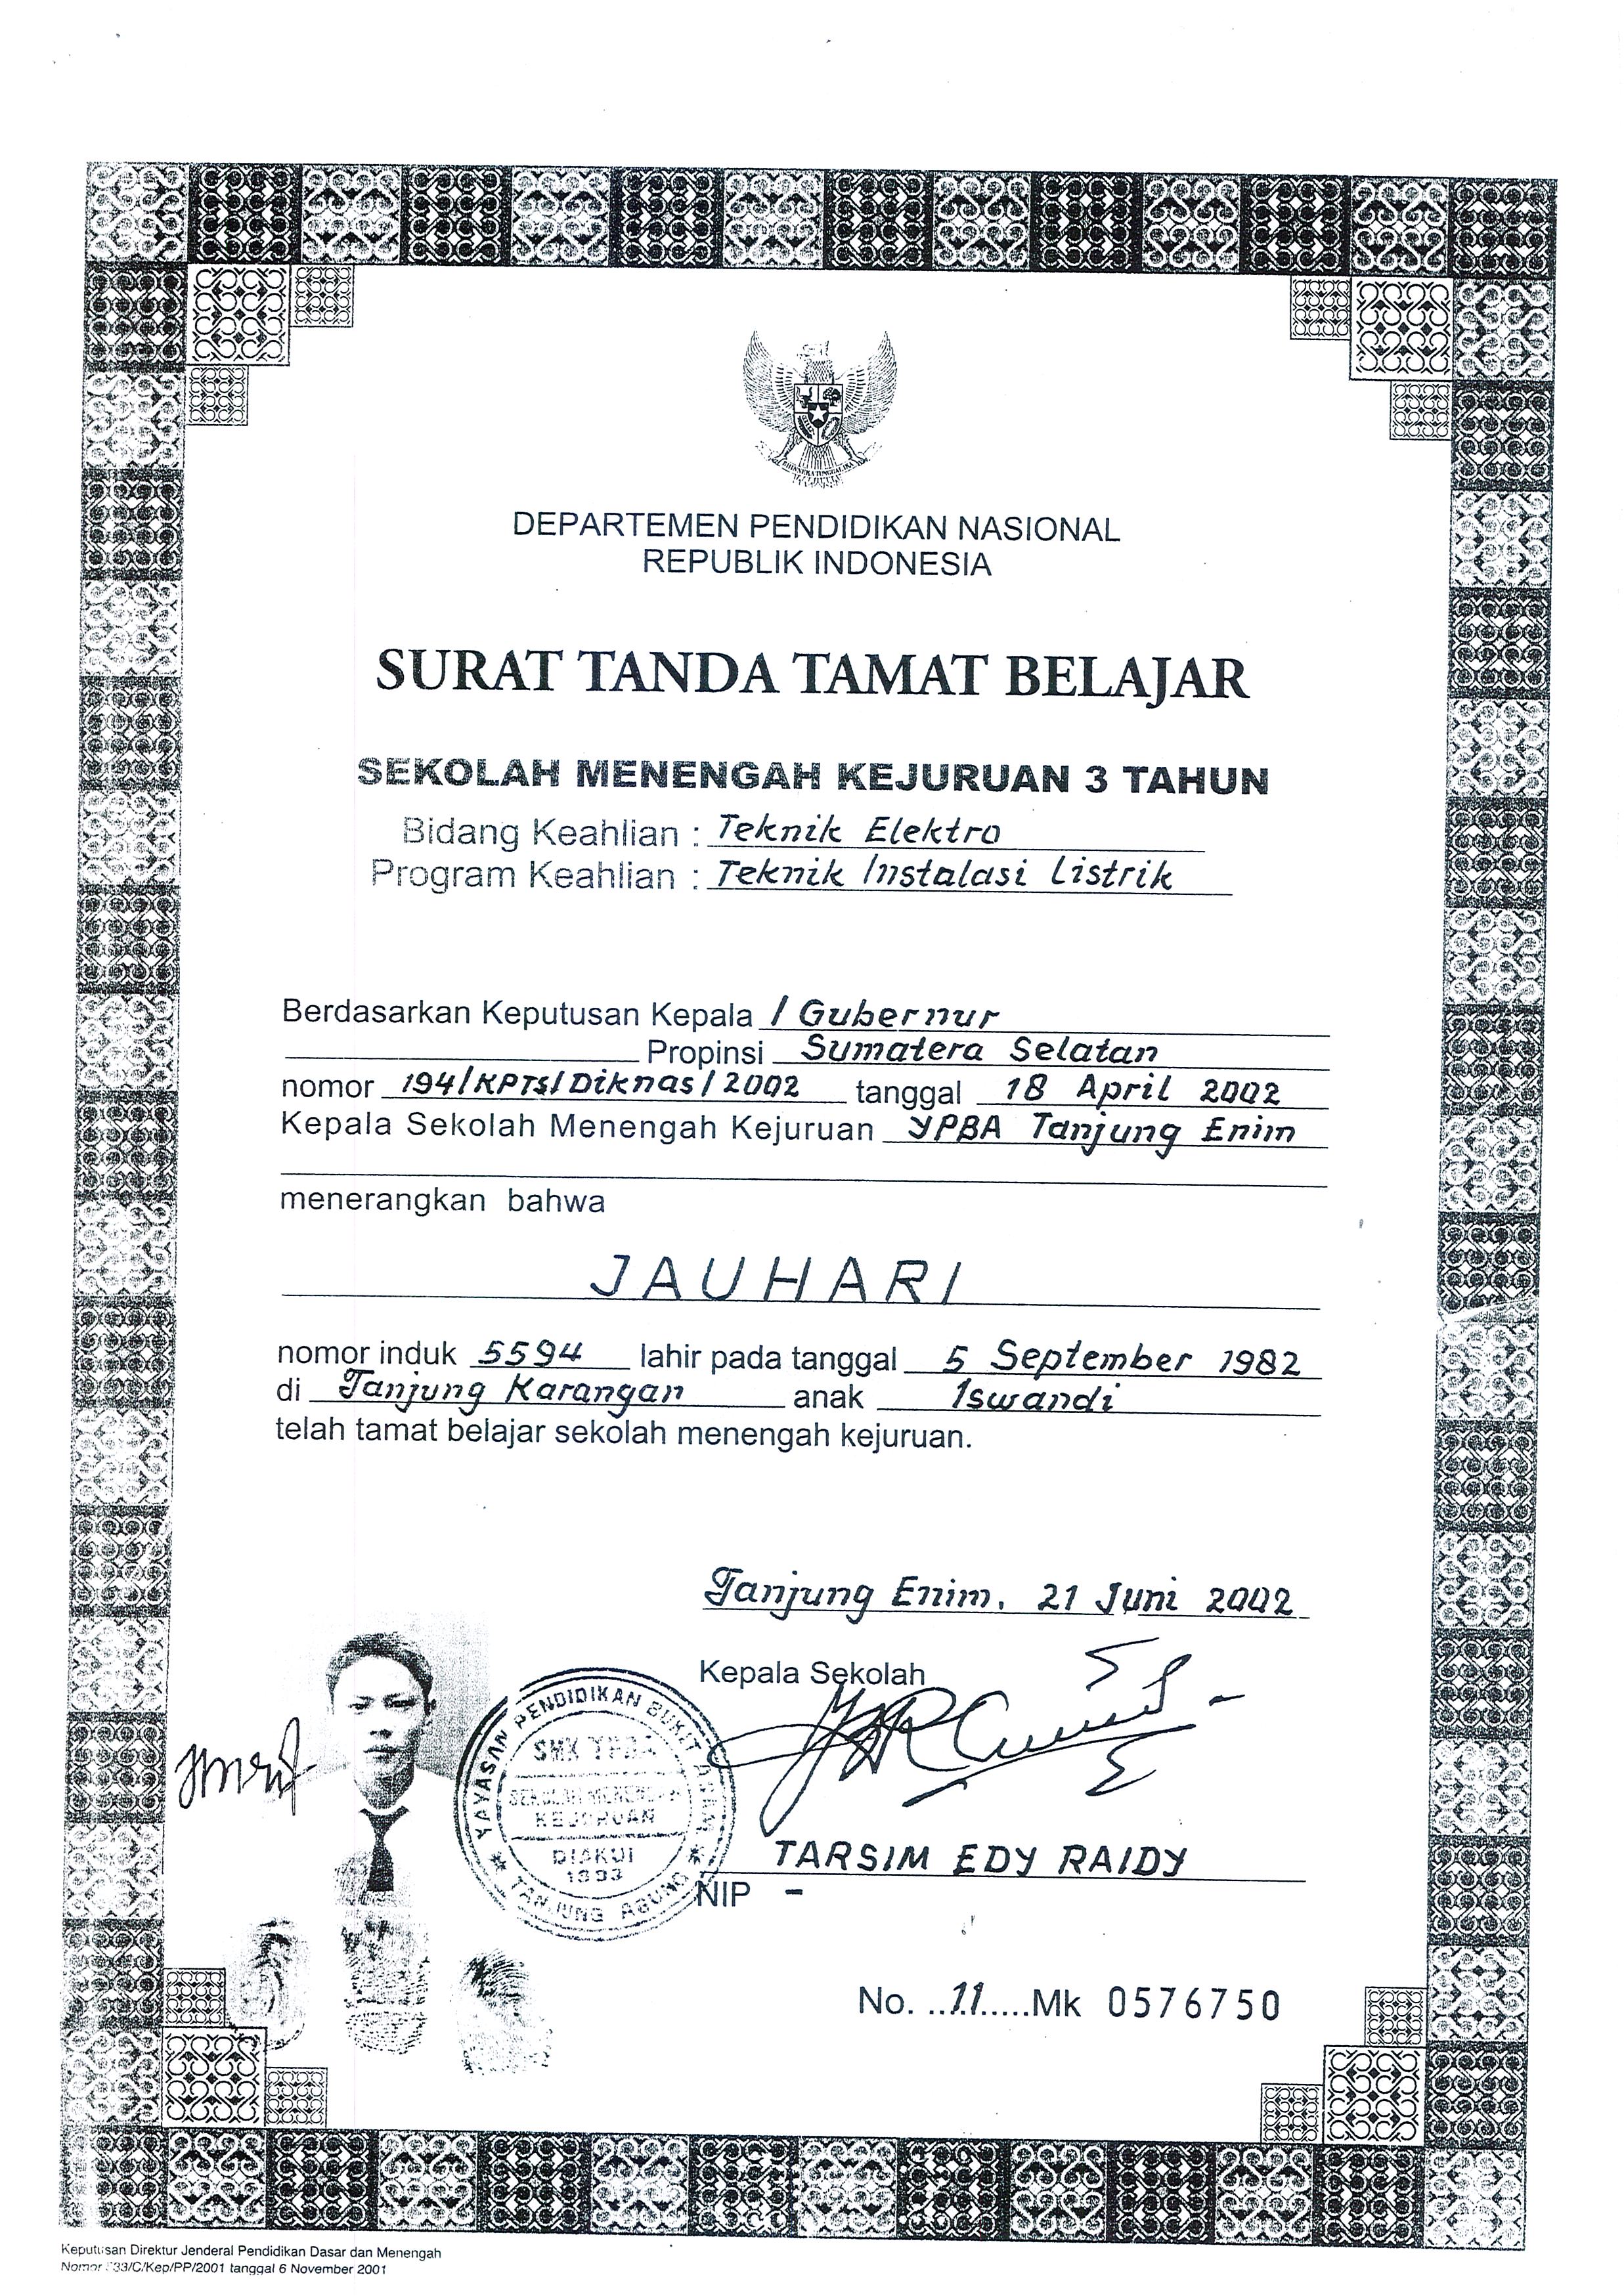 DEPARTEMEN PENDIDIKAN NASIONAL
REPUBLIK INDONESIA
SURAT TANDA TAMAT BELAJAR
SEKOLAH MENENGAH KEJURUAN 3 TAHUN
Bidang Keahlian : Teknik Elektro
Program Keahlian : Teknik Instalasi Listrik
Berdasarkan Keputusan Kepala / Gubernur
Propinsi Sumatera Selatan
nomor 194/KPTS/Diknas/2002 tanggal 18 April 2002
Kepala Sekolah Menengah Kejuruan YPBA Tanjung Enim
menerangkan bahwa
JAUHARI
nomor induk 5594 lahir pada tanggal 5 September 1982
di Tanjung Karangan anak Iswandi
telah tamat belajar sekolah menengah kejuruan.
Tanjung Enim, 21 Juni 2002
Kepala Sekolah
YAYASAN PENDIDIKAN BUKIT ASAM
SMK YPBA
SEKOLAH MENENGAH
KEJURUAN
DIAKUI
1993
TANJUNG AGUNG
TARSIM EDY RAIDY
NIP -
No. ..11.....Mk 0576750
Keputusan Direktur Jenderal Pendidikan Dasar dan Menengah
Nomor 33/C/Kep/PP/2001 tanggal 6 November 2001